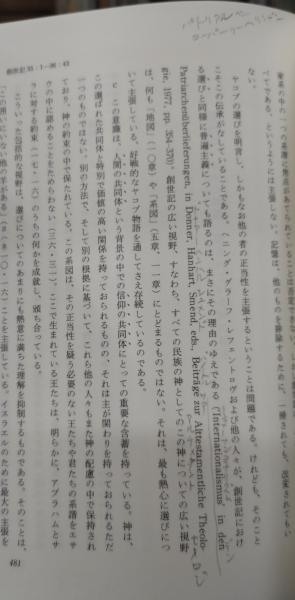 創世記35・1―36・43
家系の中の一つの系譜に焦点があてられていることは否定
べてである、というようには主張しない。記憶は、他のものを排除するために、一掃されても、改変されてもい
ない。
ヤコブの選びを明言し、しかもなお他の者の正当性を主張するということは問題である。けれども、そのこと
こそこの伝承がなしていることである。ヘニング・グラーフ・レフェントロヴおよび他の人々が、創世記におけ
る選びと同様に普遍主義についても語るのは、まさにその理由のゆえである ("Internationalismus' in den
Patriarchenüberlieferungen, in Donner, Hanhart, Smend, eds., Beiträge zur Alttestamentliche Theolo-
gie, 1977, pp. 354-370)。創世記の広い視野、すなわち、すべての民族の神としてのこの神についての広い視野
は、何も「地図」(一〇章)や「系図」(五章、一一章)にとどまるものではない。それは、最も熱心に選びにつ
いて主張している。好戦的なヤコブ物語を通してさえ存続しているのである。
c この意識は、人間の共同体という背景の中での信仰の共同体にとっての重要な含蓄を持っている。神は、
この選ばれた共同体と特別で価値の高い関係を持っておられるものの、それは主が関わりを持っておられるただ
一つのものではない。別の方法で、そして別の根拠に基づいて、これら他の人々もまた神の配慮の中で保持され
ており、神の約束の中で保たれている。この系図は、その正当性を疑う必要のない王たちや君たちの系譜をエサ
ウの中に認めることをためらわない(三六・三一)。ここで生まれている王たちは、明らかに、アブラハムとサ
ラに対する約束(一七・一六)のうちの何かを成就し、頒ち合っている。
こういった包括的な視野は、選びについてのあまりにも熱意に満ちた理解を抑制するものである。そのことは、
「この囲いにいない他の羊がある」(ヨハネ一〇・一六)ことを主張している。イスラエルのために最大の主張を
481